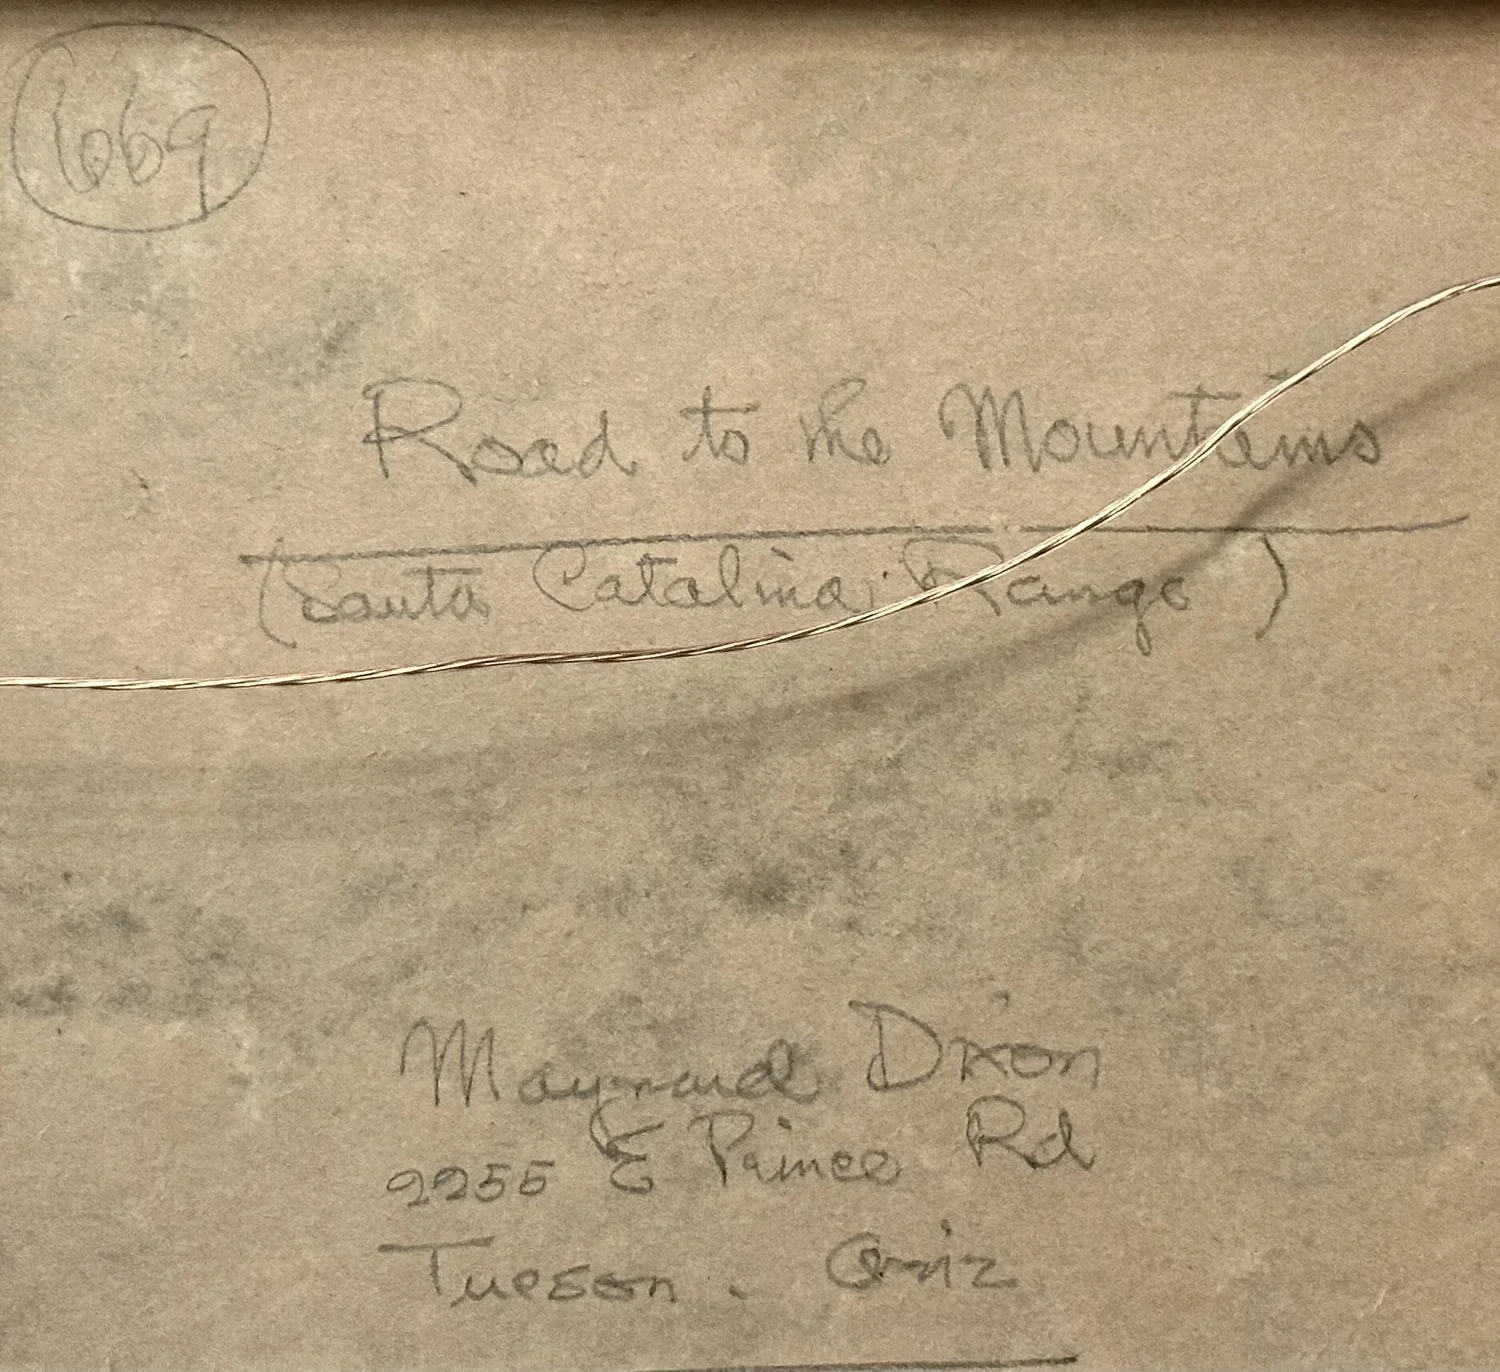 669
Road to the Mountains
(Santa Catalina Range)
Maynard Dixon
2255 E Prince Rd
Tucson. Ariz